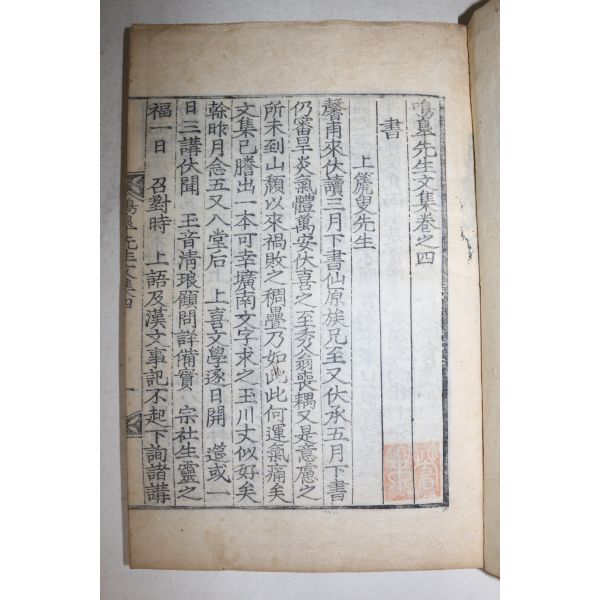 鳴皐先生文集卷之四
書
上篪叟先生
馨甫來伏讀三月下書仙原族兄至又伏承五月下書
仍審旱炎氣體萬安伏喜之至秀翁喪耦又是意慮之
所未到山頹以來禍敗之稠疊乃如此此何運氣痛矣
文集已謄出一本可幸壙南文字求之玉川丈似好矣
榦昨月念五又八堂后 上喜文學逐日開 筵或一
日三講伏聞 玉音清琅顧問詳備實 宗社生靈之
福一日 召對時 上語及漢文事記不起下詢諸講
鳴皐先生文集四
一